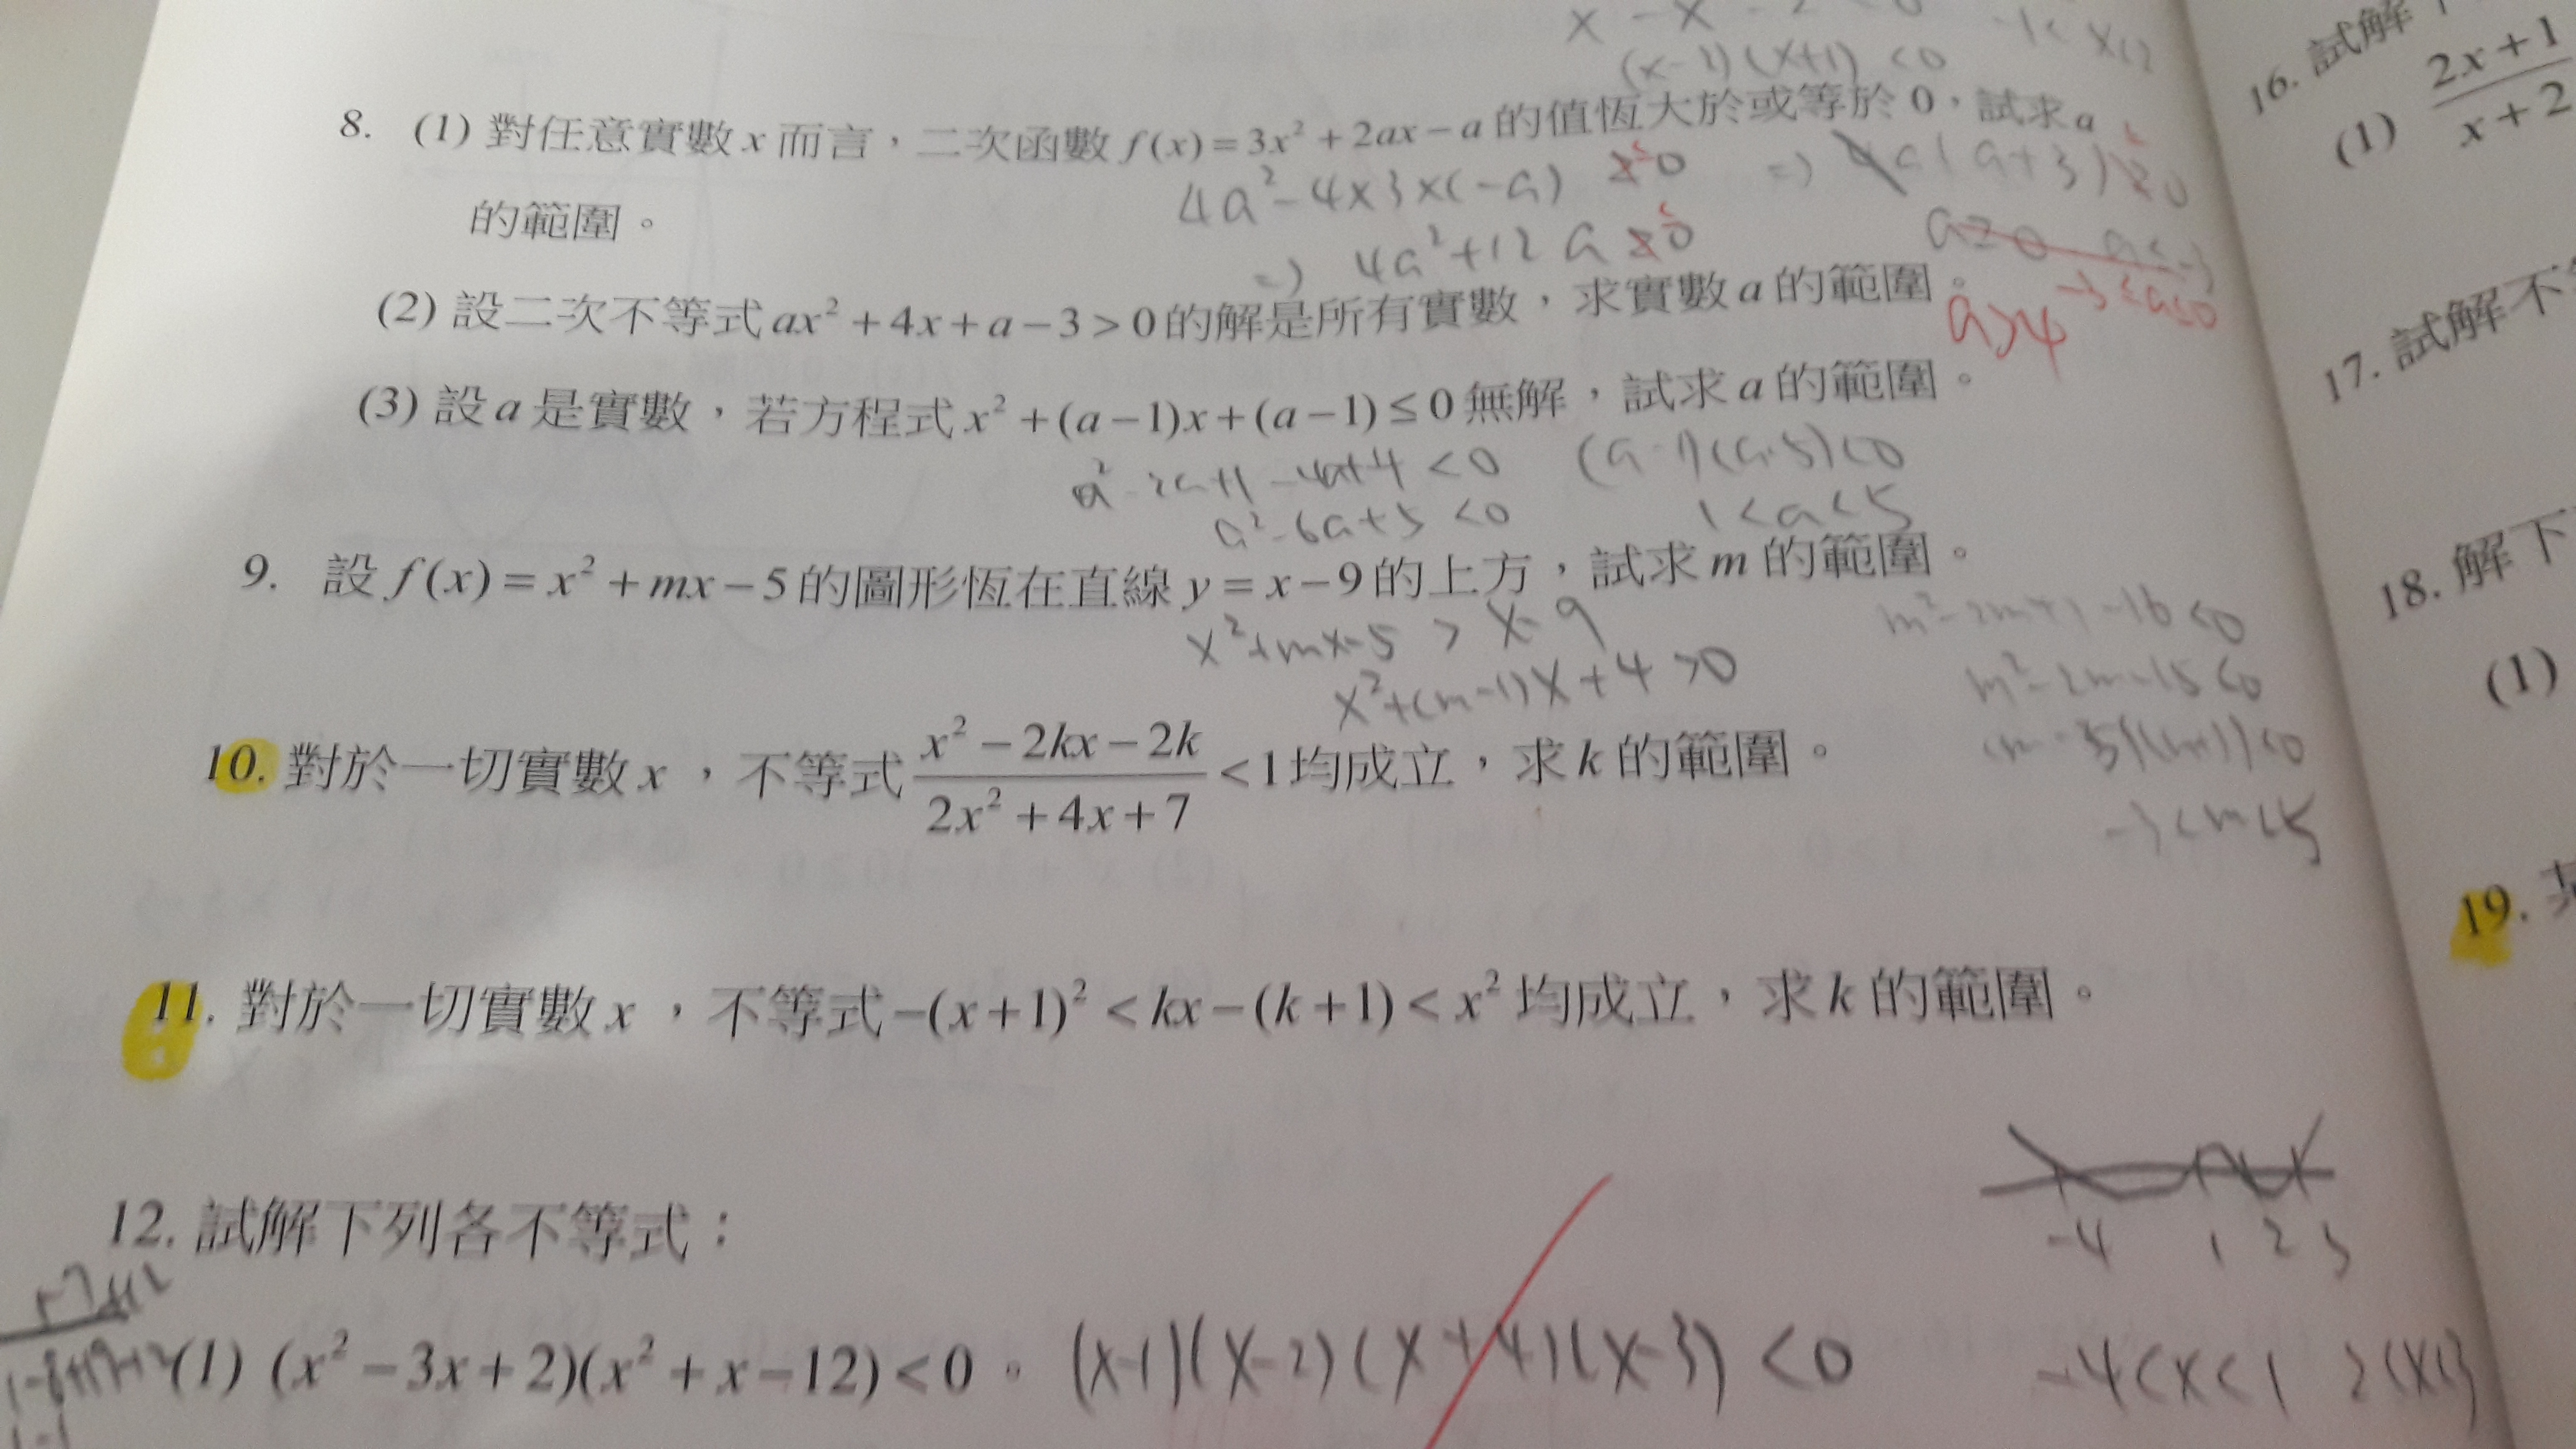 (x-2)(x+1) <0
8. (1) 對任意實數 x 而言，二次函數 f(x)=3x²+2ax−a 的值恆大於或等於 0，試求 a
4a²-4×3×(-a) 0 => 4a(a+3) 0
的範圍。
=> 4a²+12a 0
-3≤a≤0
(2) 設二次不等式 ax²+4x+a−3>0 的解是所有實數，求實數 a 的範圍。 a>4
(3) 設 a 是實數，若方程式 x²+(a−1)x+(a−1)≤0 無解，試求 a 的範圍。
a²-2a+1-4a+4 <0 (a-1)(a-5)<0
a²-6a+5 <0 1<a<5
9. 設 f(x)=x²+mx−5 的圖形恆在直線 y=x−9 的上方，試求 m 的範圍。
x²+mx-5 > x-9 m²-2m+1-16<0
x²+(m-1)x+4 >0 m²-2m-15<0
-3<m<5
10. 對於一切實數 x，不等式 (x²−2kx−2k)/(2x²+4x+7) <1 均成立，求 k 的範圍。
11. 對於一切實數 x，不等式 −(x+1)²<kx−(k+1)<x² 均成立，求 k 的範圍。
12. 試解下列各不等式：
-4 1 2 3
(1) (x²−3x+2)(x²+x−12)<0。 (x-1)(x-2)(x+4)(x-3) <0 -4<x<1 2<x<3
16. 試解
(1) (2x+1)/(x+2)
17. 試解不
18. 解下
(1)
19.